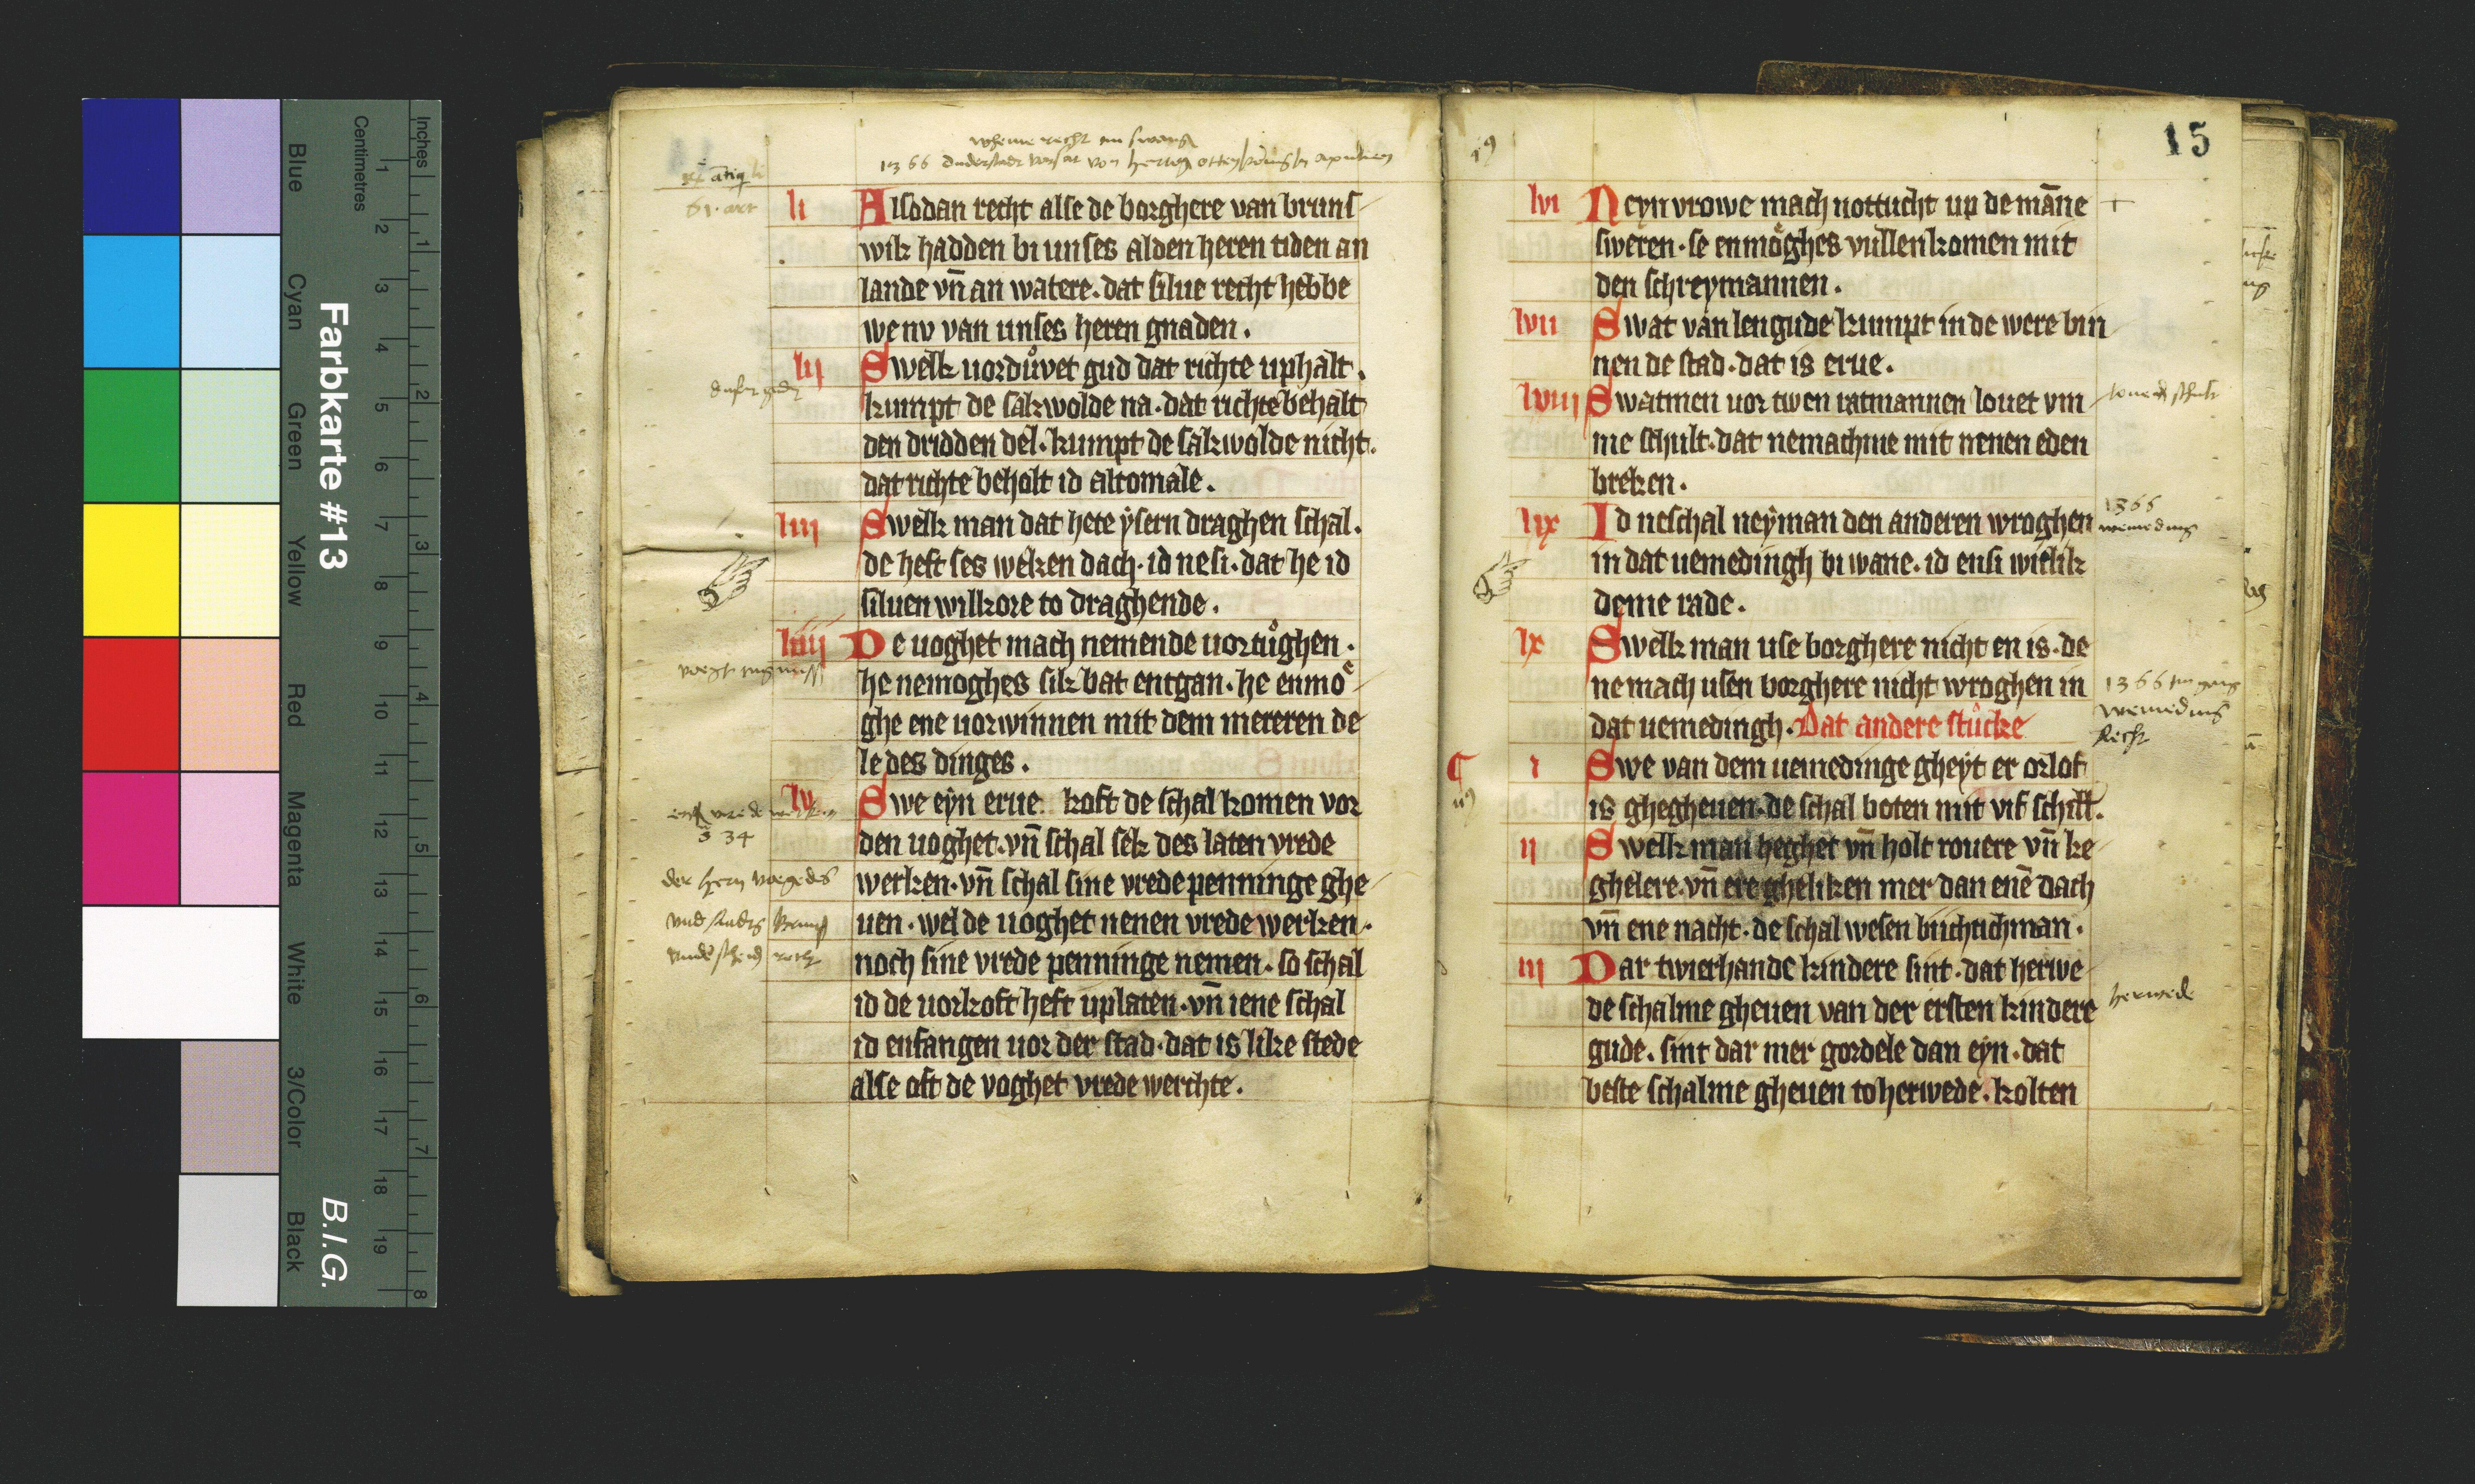 Blue
Cyan
Green
Yellow
Red
Magenta
White
3/Color
Black
Farbkarte #13
B.I.G.
Centimetres
Inches
1 2 3 4 5 6 7 8 9 10 11 12 13 14 15 16 17 18 19
1 2 3 4 5 6 7 8
wheme recht im swang
1366 duderstadt von
li Alsodan recht alse de borghere van bruns
wik hadden bi unses alden heren tiden an
lande vn̄ an watere. dat silue recht hebbe
we nv van unses heren gnaden.
lij Swelk uordůvet gud dat richte uphalt.
kumpt de sakwolde na. dat richte behalt
den dridden del. kumpt de sakwolde nicht.
dat richte beholt id altomale.
liij Swelk man dat hete ysern draghen schal.
de heft ses weken dach. id ne si. dat he id
siluen willkore to draghende.
liiij De uoghet mach nemende uortůghen.
he nemoghes sik bat entgan. he enmoͤ
ghe ene uorwinnen mit dem mereren de
le des dinges.
lv Swe eyn erue koft de schal komen vor
den uoghet. vn̄ schal sek des laten vrede
werken. vn̄ schal sine vrede penninge ghe
uen. wel de uoghet nenen vrede werken.
noch sine vrede penninge nemen. so schal
id de uorkoft heft uplaten. vn̄ iene schal
id enfangen uor der stad. dat is like stede
alse oft de voghet vrede werchte.
34
15
lvi Neyn vrowe mach nottucht up de mān̄e
sweren. se enmoͤghes vullenkomen mit
den schreymannen.
lvii Swat van lengude kumpt in de were bin
nen de stad. dat is erue.
lviij Swatmen uor twen ratmannen louet vm
me schult. dat nemachme mit nenen eden
breken.
lix Id neschal neyman den anderen wroghen
in dat uemedingh bi wane. id ensi witlik
deme rade.
lx Swelk man use borghere nicht en is. de
ne mach usen borghere nicht wroghen in
dat uemedingh. Dat andere stůcke
i Swe van dem uemedinge gheyt er orlof
is ghegheuen. de schal boten mit vif schill.
ij Swelk man heghet vn̄ holt rouere vn̄ ke
ghelere. vn̄ ere gheliken mer dan enē dach
vn̄ ene nacht. de schal wesen buchtichman.
iij Dar twierhande kindere sint. dat herwe
de schalme gheuen van der ersten kindere
gude. sint dar mer gordele dan eyn. dat
beste schalme gheuen to herwede. kolten
1366
wemeding
1366
wemeding
Recht
herwede